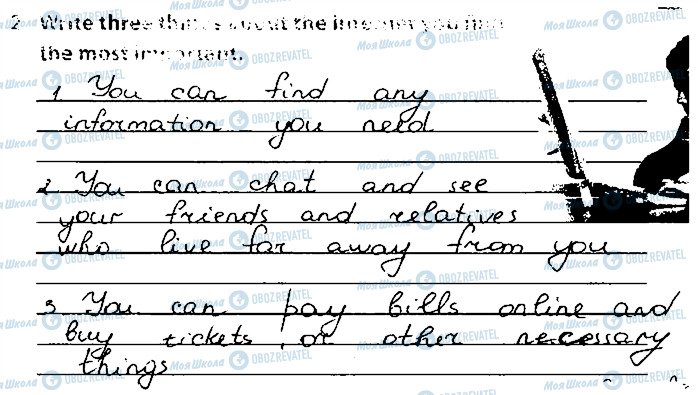 2 Write three things about the internet you find
the most important.
1. You can find any
information you need
2. You can chat and see
your friends and relatives
who live far away from you
3 You can pay bills online and
buy tickets, or other necessary
things
Моя Школа OBOZREVATEL